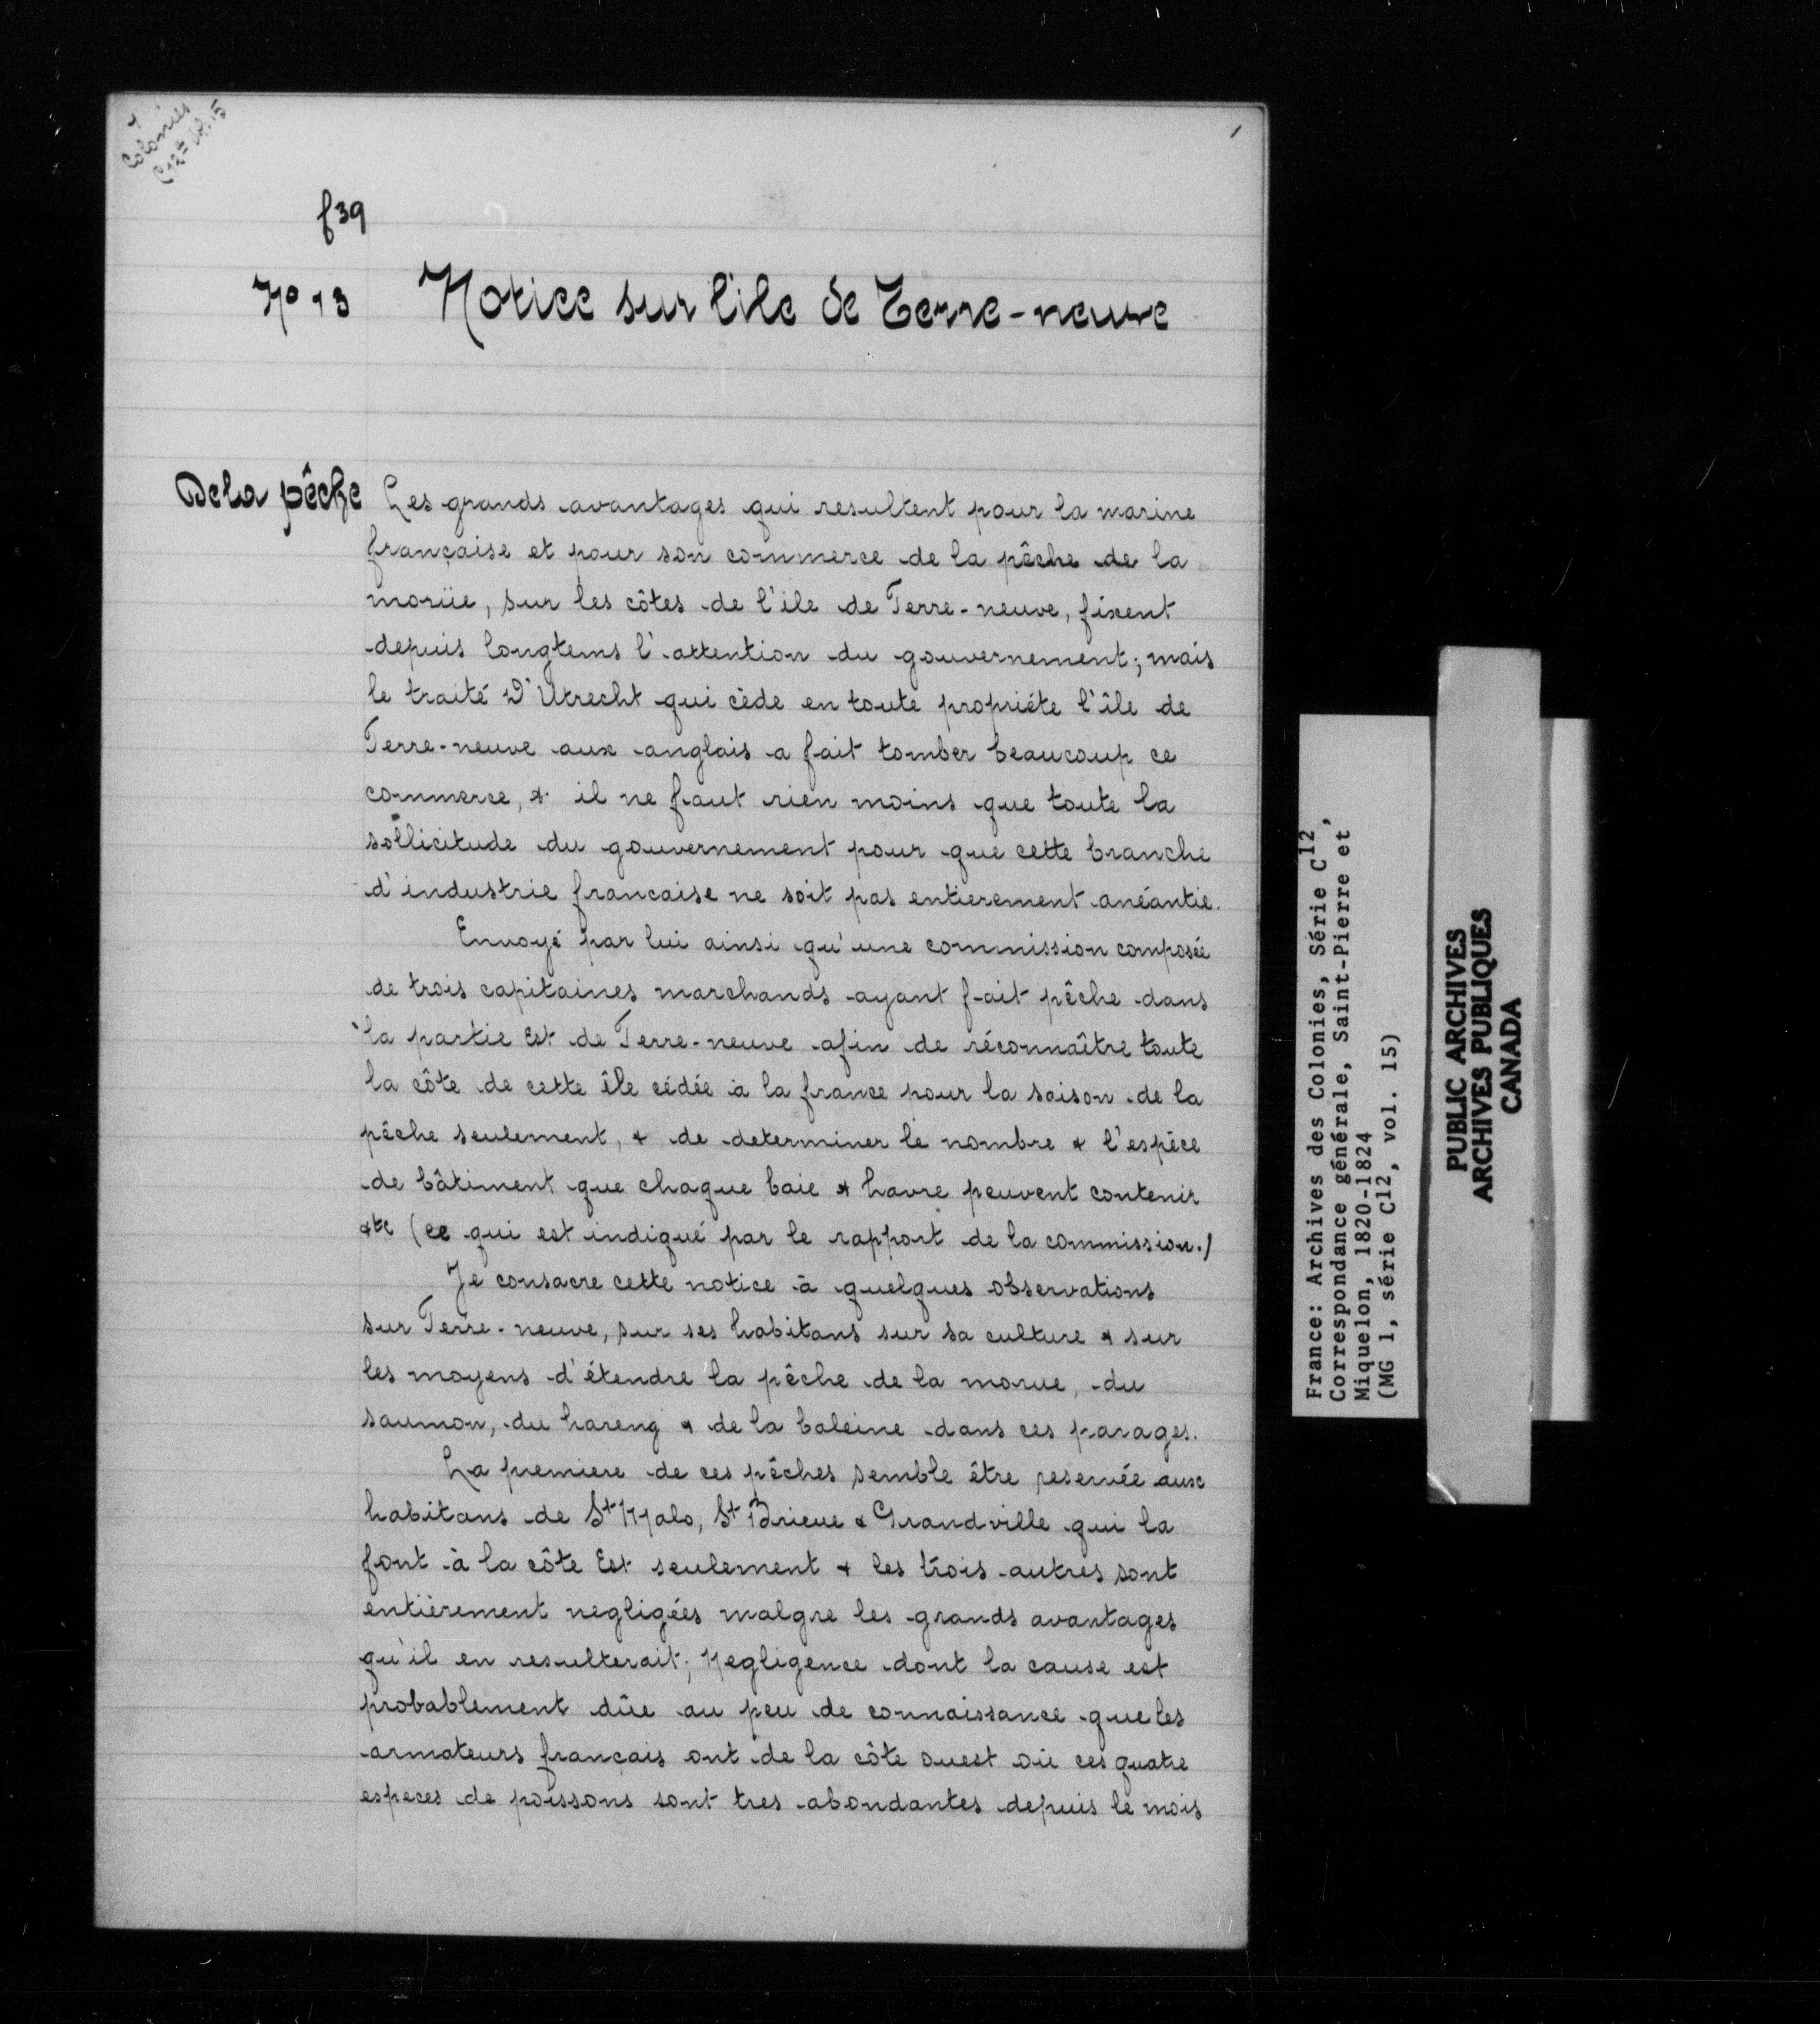 Colonies
C12 Vol. 15
1
f 39
No 13 Notice sur l'ile de Terre-neuve
De la pêche
Les grands avantages qui resultent pour la marine
française et pour son commerce de la pêche de la
morüe, sur les côtes de l'ile de Terre-neuve, fixent
depuis longtems l'attention du gouvernement; mais
le traité d'Utrecht qui cède en toute propriéte l'île de
Terre-neuve aux anglais a fait tomber beaucoup ce
commerce, & il ne faut rien moins que toute la
sollicitude du gouvernement pour que cette branche
d'industrie francaise ne soit pas entierement anéantie.
Envoyé par lui ainsi qu'une commission composée
de trois capitaines marchands ayant fait pêche dans
la partie Est de Terre-neuve afin de réconnaître toute
la côte de cette île cédée à la france pour la saison de la
pêche seulement, & de determiner le nombre & l'espèce
de bâtiment que chaque baie & havre peuvent contenir
&tc (ce qui est indiqué par le rapport de la commission.)
Je consacre cette notice à quelques observations
sur Terre-neuve, sur ses habitans sur sa culture & sur
les moyens d'étendre la pêche de la morue, du
saumon, du hareng & de la baleine dans ces parages.
La premiere de ces pêches semble être reservée aux
habitans de St Malo, St Brieue & Grandville qui la
font à la côte Est seulement & les trois autres sont
entièrement negligées malgre les grands avantages
qu'il en resulterait; Negligence dont la cause est
probablement dûe au peu de connaissance que les
armateurs français ont de la côte ouest où ces quatre
especes de poissons sont tres abondantes depuis le mois
France: Archives des Colonies, Série C12,
Correspondance générale, Saint-Pierre et
Miquelon, 1820-1824
(MG 1, série C12, vol. 15)
PUBLIC ARCHIVES
ARCHIVES PUBLIQUES
CANADA